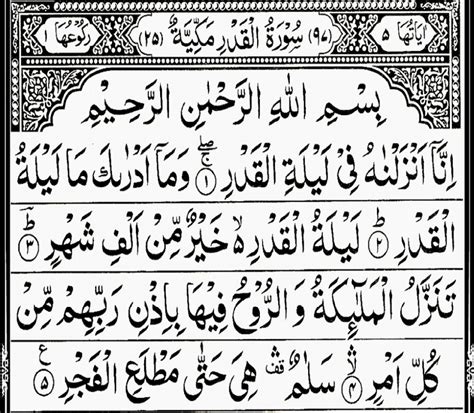 اٰیَاتُهَا ٥ (٩٧) سُوْرَةُ الْقَدْرِ مَكِّیَّةٌ (٢٥) رُكُوْعُهَا ١
بِسْمِ اللهِ الرَّحْمٰنِ الرَّحِیْمِ
اِنَّاۤ اَنْزَلْنٰهُ فِیْ لَیْلَةِ الْقَدْرِ ۚۖ ﴿١﴾ وَمَاۤ اَدْرٰىكَ مَا لَیْلَةُ
الْقَدْرِ ؕ ﴿٢﴾ لَیْلَةُ الْقَدْرِ ۙ۬ خَیْرٌ مِّنْ اَلْفِ شَهْرٍ ؕ ﴿٣﴾
تَنَزَّلُ الْمَلٰٓىِٕكَةُ وَ الرُّوْحُ فِیْهَا بِاِذْنِ رَبِّهِمْ مِّنْ
كُلِّ اَمْرٍ ۙۛ ﴿٤﴾ سَلٰمٌ قف هِیَ حَتّٰی مَطْلَعِ الْفَجْرِ ﴿٥﴾ ع